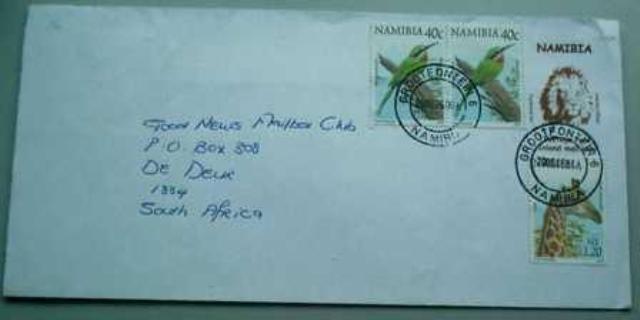 NAMIBIA 40c NAMIBIA 40c
NAMIBIA
GROOTFONTEIN 6
NAMIBIA
GROOTFONTEIN 6
NAMIBIA
inland mail
N$
1.20
Good News Mailbox Club
P.O. Box 808
De Deur
1884
South Africa